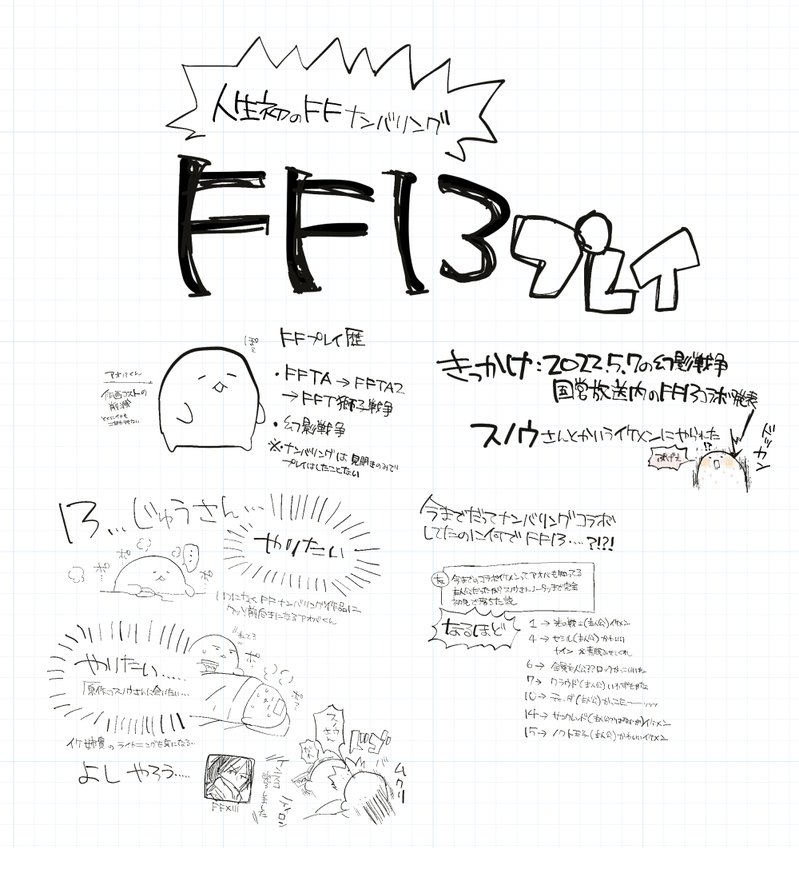 人生初のFFナンバリング
FF13プレイ
ぽて
FFプレイ歴
・FFTA→FFTA2
→FFT獅子戦争
・幻影戦争
※ナンバリングは見聞きのみで
プレイはしたことない
作画コストの
きっかけ:2022.5.7の幻影戦争
国営放送内のFF13コラボ発表
スノウさんとかいうイケメンにやられた
ドッカン
!?
13…じゅうさん…
ポ
ポ
やりたい
いつになくFFナンバリング作品に
クッソ前向きになるアオバくん
やりたい……
原作のスノウさんに会いたい…
ポ
ポ
イケ姉貴のライトニングも気になる…
よし やろう……
FFXIII
スノウさん
ムクリ
今までだってナンバリングコラボ
してたのに何でFF13……?!?!
友
今までのコラボイケメンってアオバも知ってる
初見で落ちた説
なるほど
1→光の戦士(主人公)イケメン
4→セシル(主人公)かわいい
カイン
6→
7→クラウド(主人公)
10→ティーダ(主人公)
14→サンクレッド イケメン
15→ノクト王子(主人公)かわいいイケメン